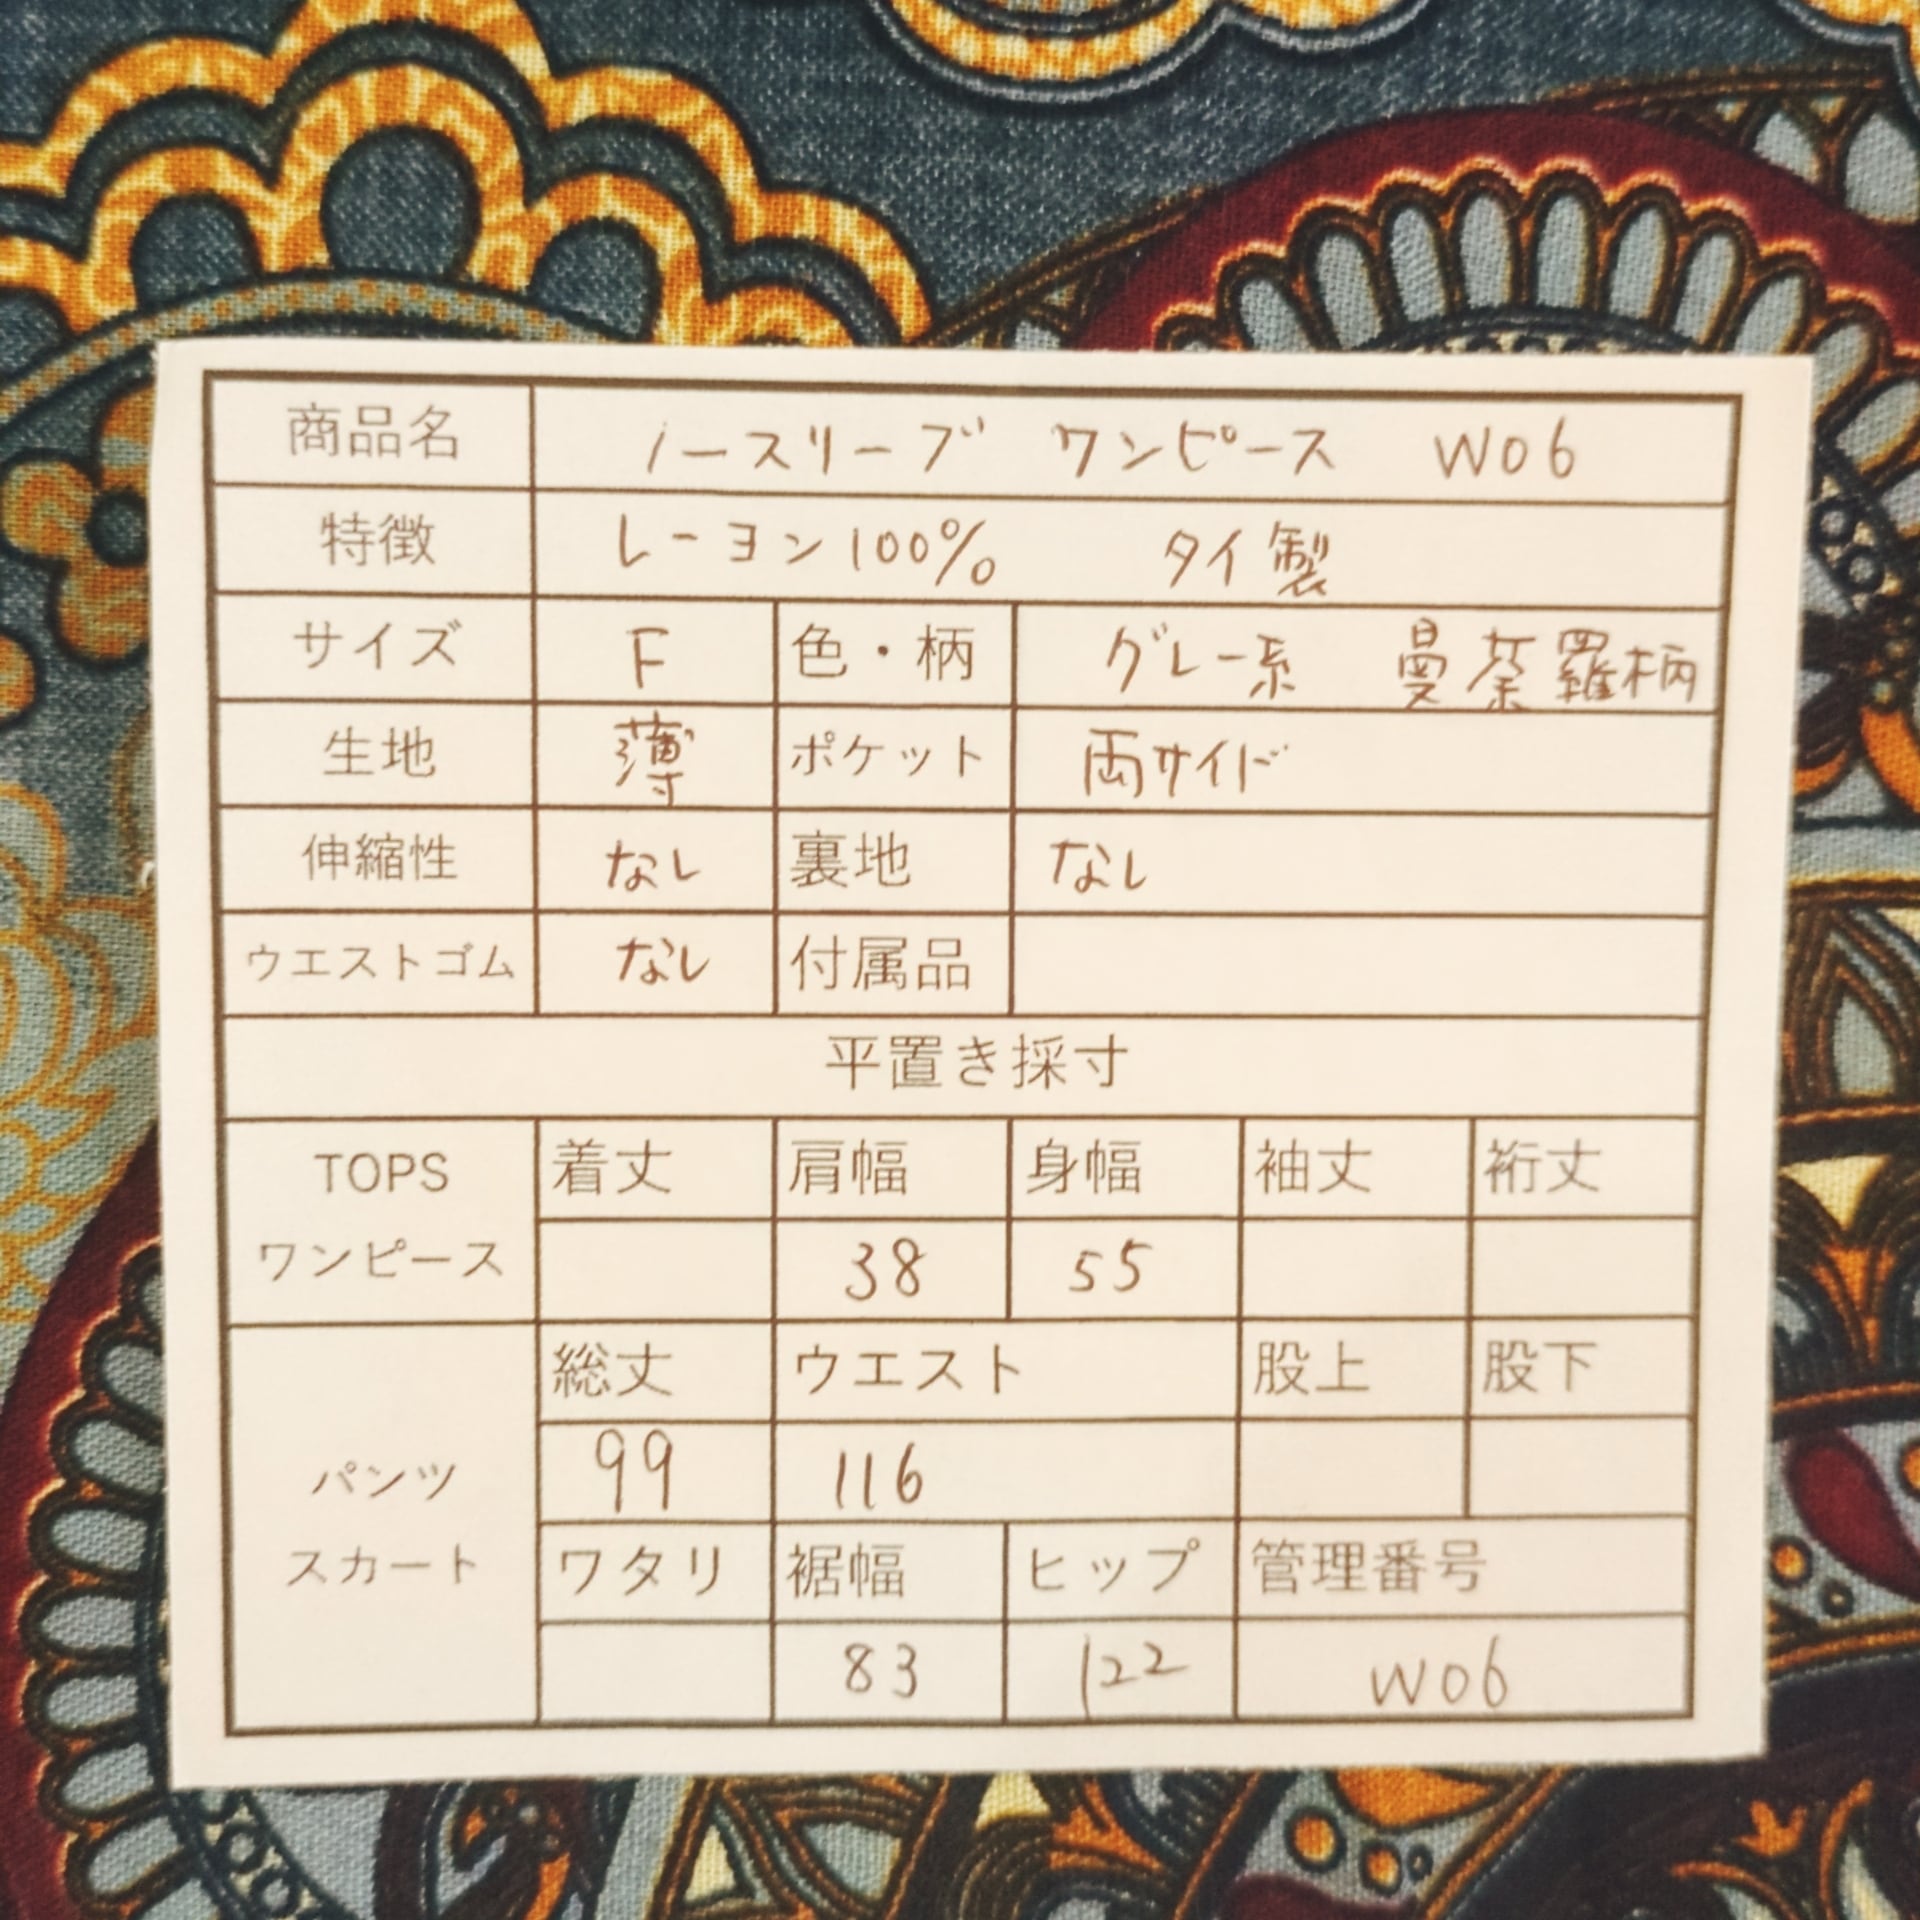 商品名 ノースリーブ ワンピース W06
特徴 レーヨン100% タイ製
サイズ F 色・柄 グレー系 曼荼羅柄
生地 薄 ポケット 両サイド
伸縮性 なし 裏地 なし
ウエストゴム なし 付属品
平置き採寸
TOPS 着丈 肩幅 身幅 袖丈 裄丈
ワンピース 38 55
総丈 ウエスト 股上 股下
パンツ 99 116
スカート ワタリ 裾幅 ヒップ 管理番号
83 122 W06